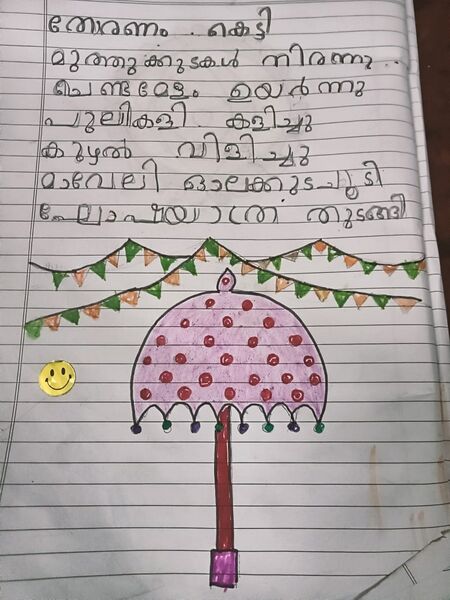 തോരണം കെട്ടി
മുത്തുക്കുടകൾ നിരന്നു..
ചെണ്ടമേളം ഉയർന്നു
പുലികളി കളിച്ചു
കുഴൽ വിളിച്ചു
മാവേലി ഓലക്കുടചൂടി
ഘോഷയാത്ര തുടങ്ങി